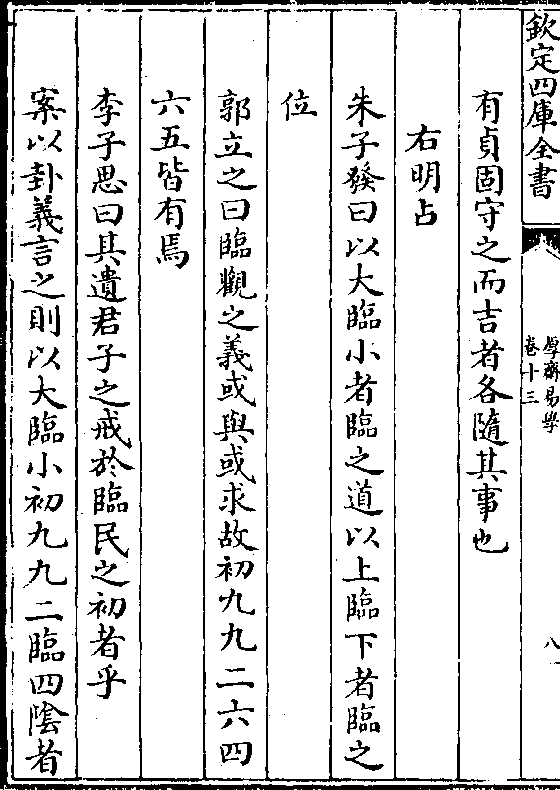 欽定四庫全書
厚齋易學
卷十三
八
有貞固守之而吉者各隨其事也
右明占
朱子發曰以大臨小者臨之道以上臨下者臨之
位
郭立之曰臨觀之義或與或求故初九九二六四
六五皆有焉
李子思曰其遺君子之戒於臨民之初者乎
案以卦義言之則以大臨小初九九二臨四陰者